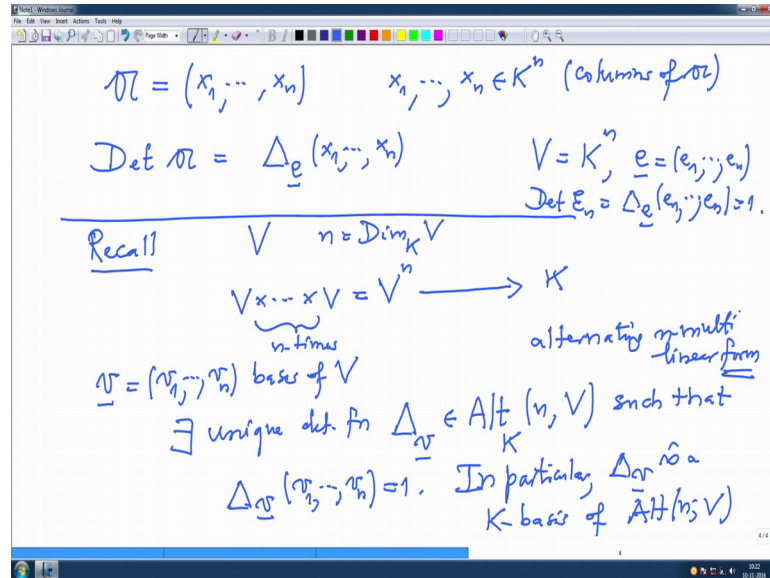 Note1 - Windows Journal
File Edit View Insert Actions Tools Help
Page Width
𝔄 = (x₁, ⋯, xₙ)    x₁, ⋯, xₙ ∈ Kⁿ (columns of 𝔄)
Det 𝔄 = Δ_e (x₁, ⋯, xₙ)    V = Kⁿ, e = (e₁, ⋯, eₙ)
Det Eₙ = Δ_e (e₁, ⋯, eₙ) = 1.
Recall    V    n = Dim_K V
V × ⋯ × V = Vⁿ ⟶ K
n-times
alternating n-multi
linear form
v = (v₁, ⋯, vₙ) basis of V
∃ unique det. fn Δ_v ∈ Alt_K (n, V) such that
Δ_v (v₁, ⋯, vₙ) = 1. In particular, Δ_v is a
K-basis of Alt(n; V)
4/4
4
10:22
10-11-2016